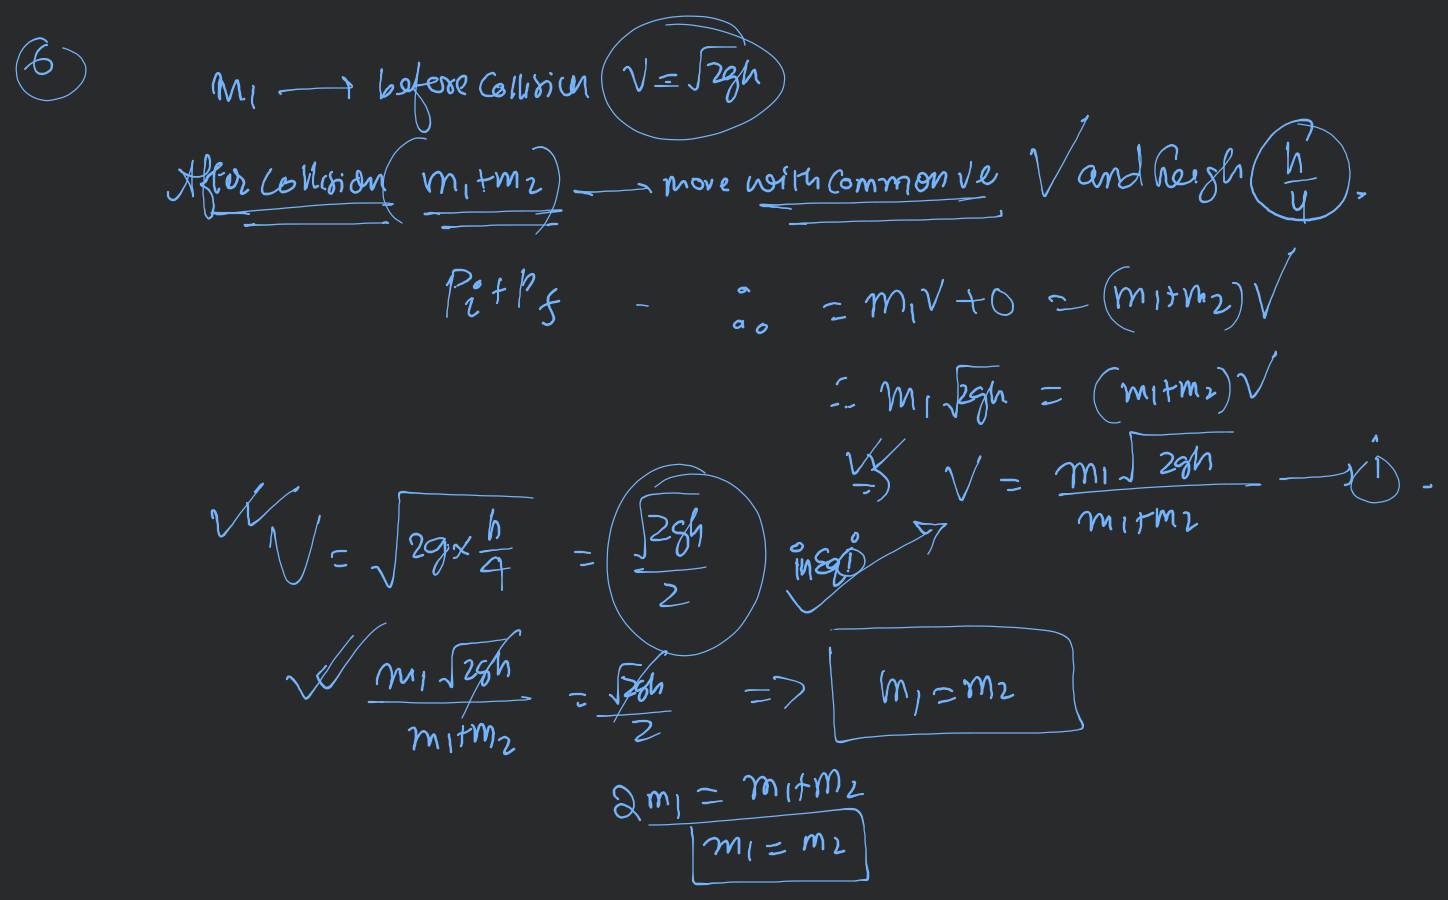 6
m₁ → before collision V = √2gh
After collision (m₁+m₂) → move with common ve V and heigh h/4.
Pi + Pf - ∴ = m₁V + 0 = (m₁+m₂)V
∴ m₁√2gh = (m₁+m₂)V
⇒ V = m₁√2gh / m₁+m₂ — (i).
V = √2g×h/4 = √2gh / 2 in Eq (i)
m₁√2gh / m₁+m₂ = √2gh / 2 => m₁ = m₂
2m₁ = m₁+m₂
m₁ = m₂